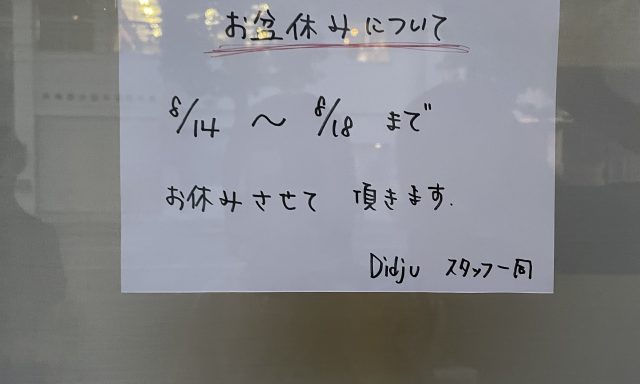 お盆休みについて
8/14 ～ 8/18 まで
お休みさせて 頂きます.
Didju スタッフ一同